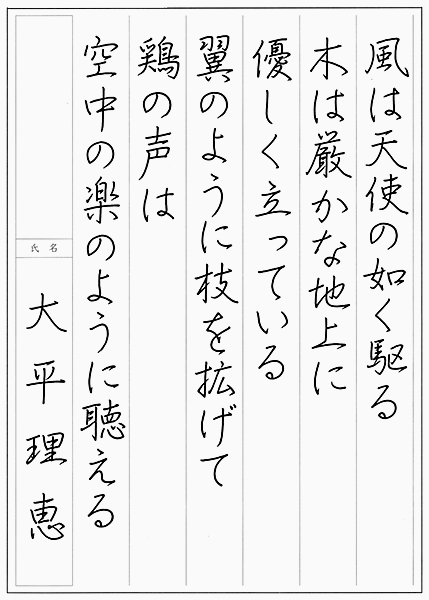 風は天使の如く駆る
木は厳かな地上に
優しく立っている
翼のように枝を拡げて
鶏の声は
空中の楽のように聴える
氏名
大平理恵